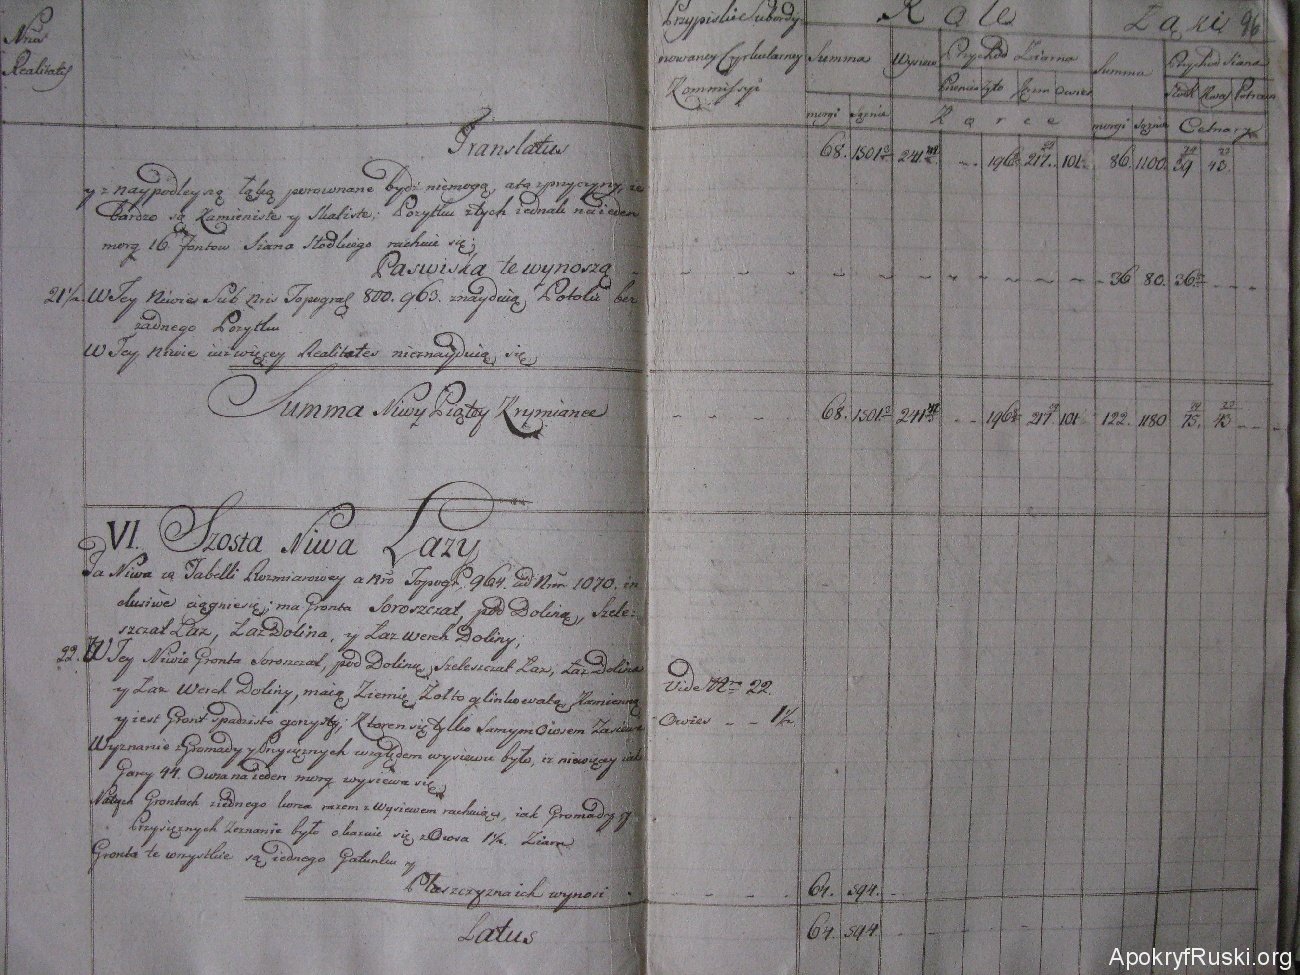 Nrus
Realitatis
Przypiski Subordy-
nowaney Cyrkularney
Kommissyi
Role
Łąki
96
Summa
Wysiew
Przychod Ziarna
Summa
Przychod Siana
Pszenica Żyto Jęczm Owies
Słodk Kwaś Potraw
morgi Sążnie
Korce
morgi Sążnie
Cetnary
Translatus
68. 1301 241 - - 196 217 101 86. 1100. 39 43
y z naypodleyszą łąką porownane bydź niemogą, a tą przyczyną, że
bardzo są kamieniste y skaliste; Pożytku z tych iednak na ieden
morg 16 Fontow Siana Słodkiego rachuie się;
Paswiska te wynoszą
36 80. 36
21½. W Tey Niwie Sub Nris Topograf 800. 963. znayduią Potoki bez
żadnego Pożytku
W Tey Niwie iuż więcey Realitates nieznayduią się
Summa Niwy Piątey Krymianee
68. 1301 241 - - 196 217 101 122. 1180 75. 43
VI. Szosta Niwa Łazy
Ta Niwa za Tabelli Rozmiarowey a Nro Topogr. 964. ad Nrm 1070. in
clusive ciągnie się; ma Gronta Soroszczat, pod Doliną, Szeles-
szczat Łaz, Łaz Dolina, y Łaz Werch Doliny;
22. W Tey Niwie Gronta Soroszczat, pod Doliną, Szeleszczat Łaz, Łaz Dolina
y Łaz Werch Doliny, maią Ziemię Żołto glinkowatą, Kamienną
y iest Gront spadzisto gorzysty; Ktoren się tylko Samym Owsem Zasiewa
Wyznanie z Gromady y Przysięznych względem wysiewu było, iż niewięcy iak
Garcy 44. Owsa na ieden morg wysiewa się
Na tych Grontach z iednego korca razem z Wysiewem rachuiąc, iak Gromady y
Przysięznych Zeznanie było okazuie się z Owsa 1½. Ziarn
Gronta te wszystkie są iednego Gatunku y
Płaszczyzna ich wynosi
64. 594.
Latus
64. 594
Vide Nro 22.
Owies - - 1½
ApokryfRuski.org